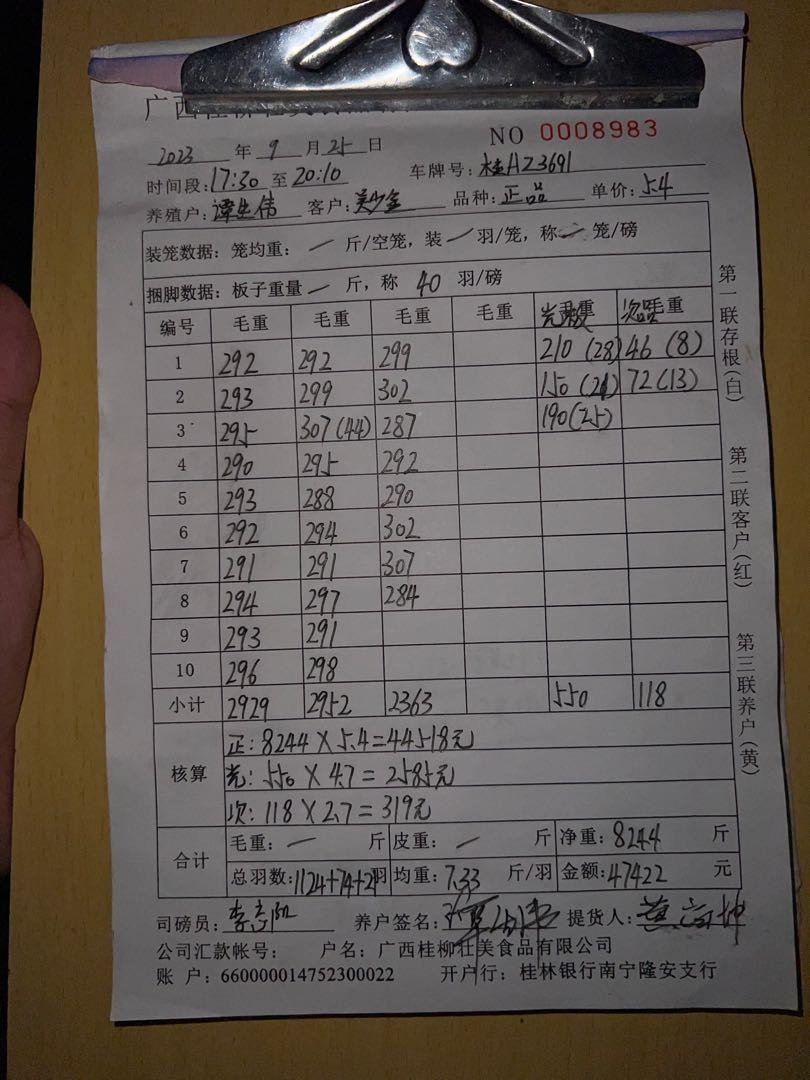 NO 0008983
2023 年 9 月 25 日
时间段:17:30 至 20:10 车牌号:桂AZ3691
养殖户: 客户: 品种:正品 单价:5.4
装笼数据: 笼均重: — 斤/空笼, 装 — 羽/笼, 称 — 笼/磅
捆脚数据: 板子重量 — 斤, 称 40 羽/磅
编号 毛重 毛重 毛重 毛重
1 292 292 299 210 (28) 46 (8)
2 293 299 302 150 (21) 72 (13)
3 295 307 (44) 287 190 (25)
4 290 295 292
5 293 288 290
6 292 294 302
7 291 291 307
8 294 297 284
9 293 291
10 296 298
小计 2929 2952 2363 550 118
核算
正: 8244 X 5.4 = 44518元
光: 550 X 4.7 = 2585元
次: 118 X 2.7 = 319元
合计
毛重: — 斤 皮重: — 斤 净重: 8244 斤
总羽数: 1124+74+21羽 均重: 7.33 斤/羽 金额: 47422 元
司磅员: 养户签名: 提货人:
公司汇款帐号: 户名: 广西桂柳壮美食品有限公司
账 户: 660000014752300022 开户行: 桂林银行南宁隆安支行
第一联存根(白)
第二联客户(红)
第三联养户(黄)